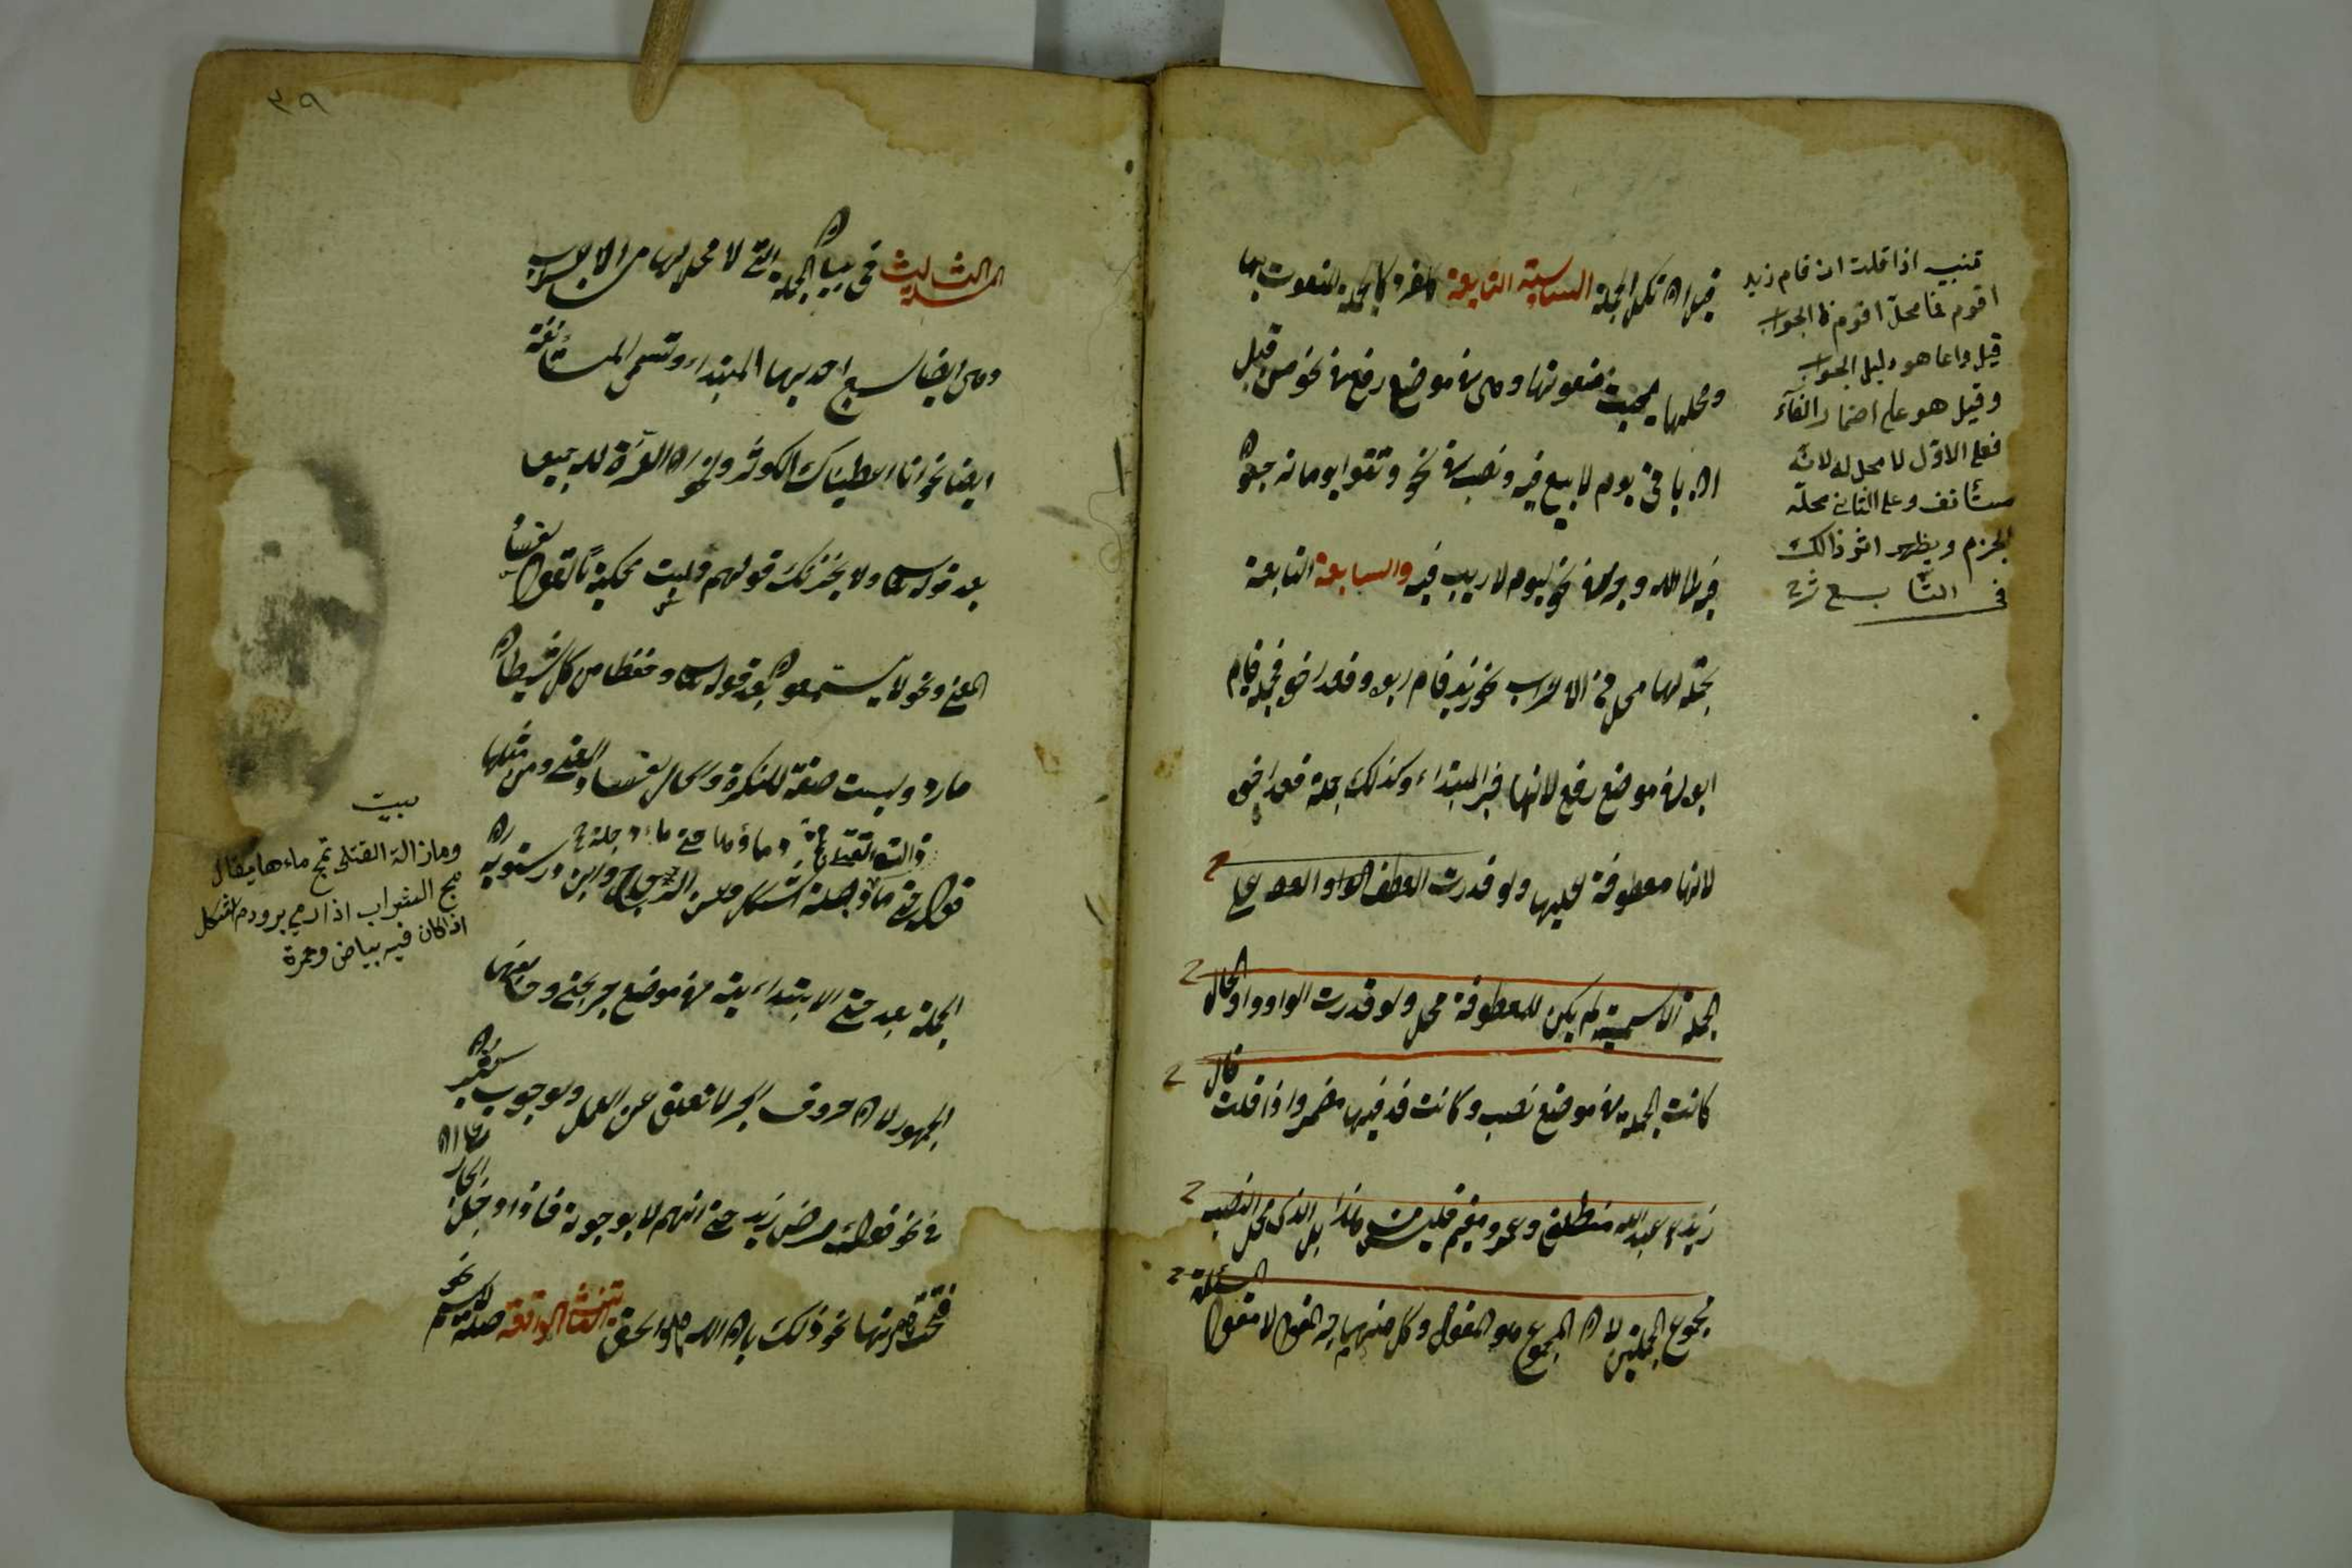 تنبيه اذا قلت ان قام زيد
اقوم فما محل اقوم فالجواب
قيل واما هو دليل الجواب
وقيل هو على اضمار الفآء
فعلى الاول لا محل له لانه
مستأنف وعلى الثاني محله
الجزم ويظهر اثر ذالك
في التابع شرح
الجملة السادسة التابعة لمفرد كالجملة المنعوت بها
ومحلها بحسب منعوتها وهي في موضع رفع في نحو من قبل
ان ياتي يوم لا بيع فيه ونصب في نحو وتقوا يوما ترجعون
فيه الى الله وجر في نحو ليوم لا ريب فيه والسابعة التابعة
لجملة لها محل من الاعراب نحو زيد قام ابوه وقعد اخوه فجملة قام
ابوه في موضع رفع لانها خبر المبتداء وكذلك جملة قعد اخوه
لانها معطوفة عليها ولو قدرت العطف على
الجملة الاسمية لم يكن للمعطوفة محل ولو قدرت الواو واو الحال
كانت الجملة في موضع نصب وكانت قد فيها مضمر واذا قلت قال
زيد عبدالله منطلق وعمرو مقيم فليس من هذا بل الذي محل النصب
مجموع الجملتين لان المجموع هو المقول وكل منهما جزء المقول لا مقول
٣٩
المسئلة الثالث في بيان الجملة التي لا محل لها من الاعراب
وهي ايضا سبع احديها المبتداء وتسمى المستأنفة
ايضا نحو انا اعطيناك الكوثر ونحو ان العزة لله جميعا
بعد قوله تعالى ولا يحزنك قولهم وليست محكية بالقول لفساد
المعنى ونحو لا يستمعون بعد قوله تعالى وحفظا من كل شيطان
مارد وليست صفة للنكرة ولا حال لفساد المعنى ومن مثلها
قوله حتى ماء دجلة اشكل وعن الزجاج وابن درستويه ان
الجملة بعد حتى الابتدائية في موضع جر بحتى وخالفهما
الجمهور لان حروف الجر لا تعلق عن العمل ولوجوب كسر ان
في نحو قولك مرض زيد حتى انهم لا يرجونه فاذا دخل الجار
فتحت همزتها نحو ذلك بان الله هو الحق الثانية الواقعة صلة لاسم نحو
بيت
وما زالة القتلى تمج ماءها يقال
مج الشراب اذا رمي به ودم اشكل
اذا كان فيه بياض وحمرة